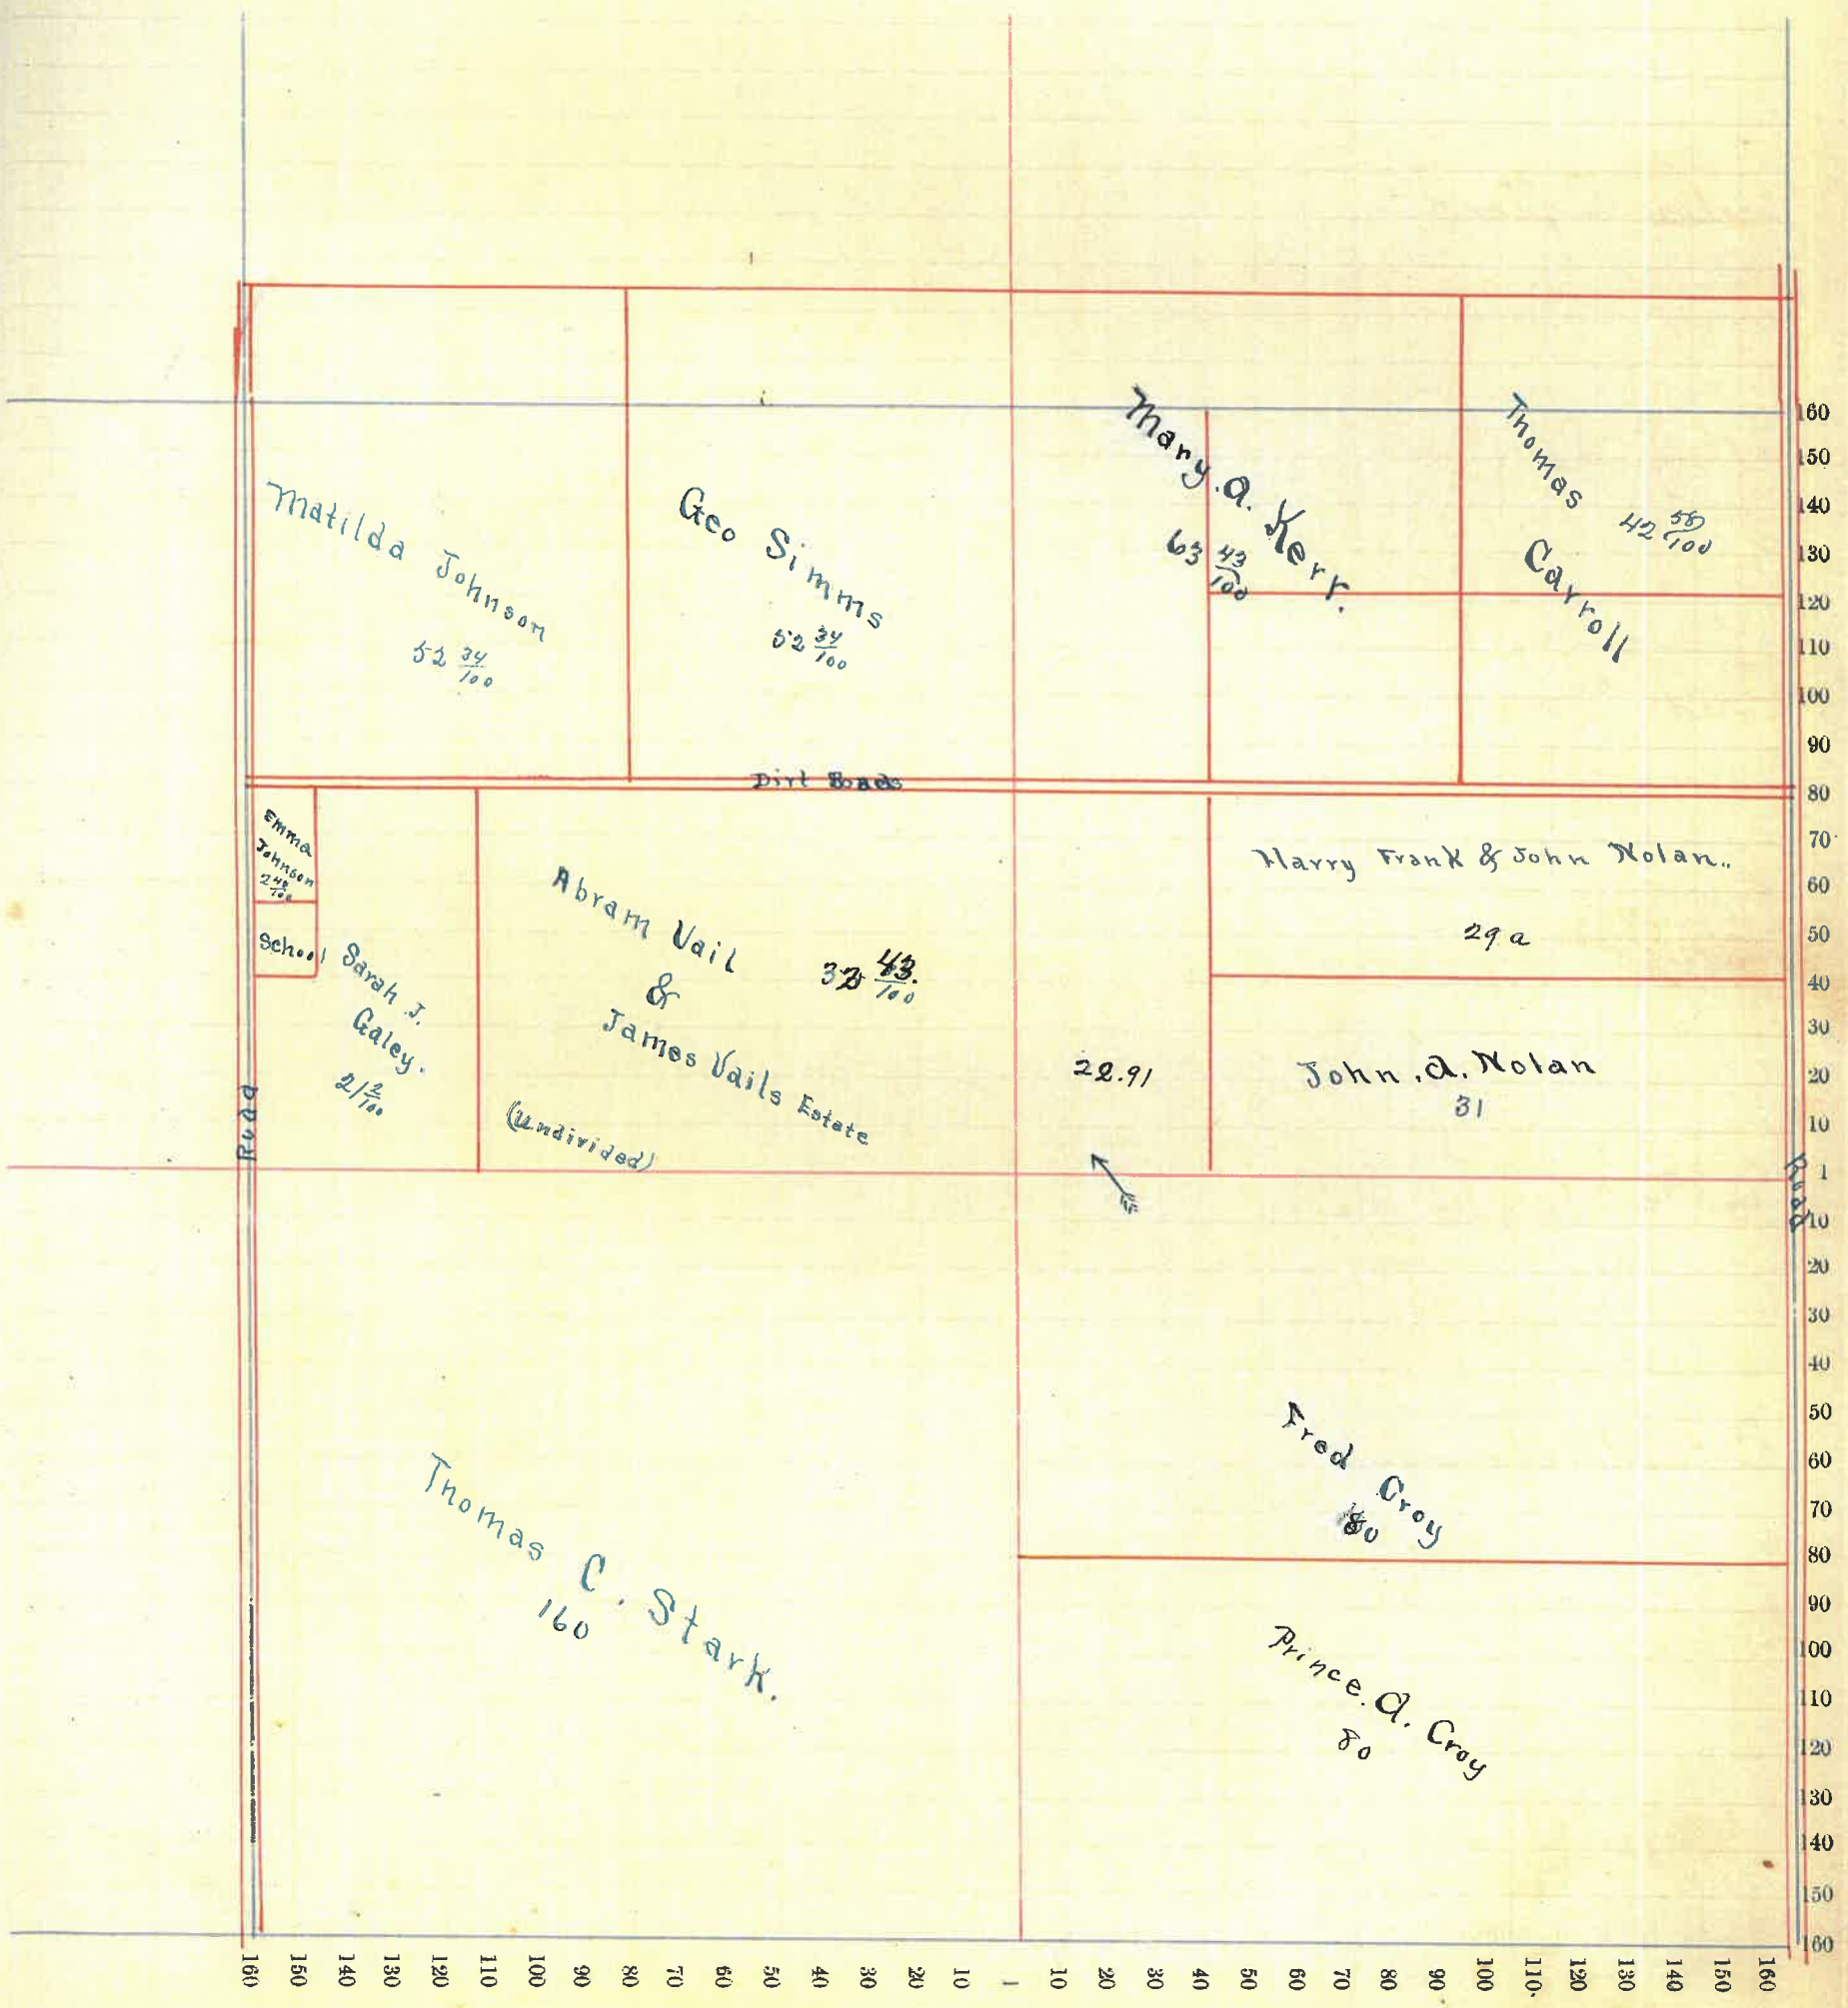 Matilda Johnson
52 34/100
Geo Simms
52 34/100
Mary. A. Kerr.
63 43/100
Thomas Carroll
42 58/100
Dirt Roads
Emma
Johnson
2 48/100
School
Sarah J.
Galey.
21 2/100
Abram Vail
&
James Vails Estate
(Undivided)
43/100
22.91
Harry Frank & John Nolan..
29 a
John. A. Nolan
31
Road
Road
Thomas C. Stark.
160
Fred Croy
80
Prince. A. Croy
80
160
150
140
130
120
110
100
90
80
70
60
50
40
30
20
10
1
10
20
30
40
50
60
70
80
90
100
110
120
130
140
150
160
160 150 140 130 120 110 100 90 80 70 60 50 40 30 20 10 1 10 20 30 40 50 60 70 80 90 100 110. 120 130 140 150 160